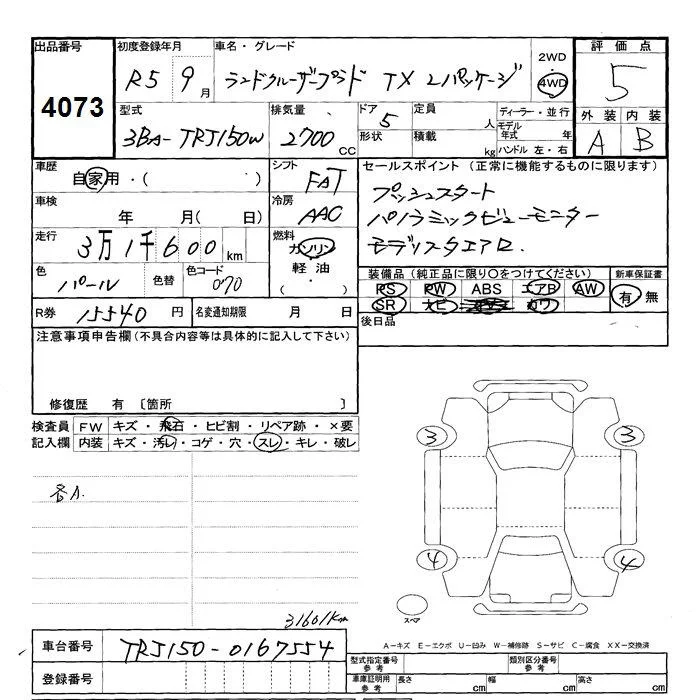 出品番号
4073
初度登録年月
R5 9月
車名・グレード
ランドクルーザープラド TX Lパッケージ
2WD
4WD
評価点
5
外装 内装
A B
型式
3BA-TRJ150W
排気量
2700 CC
ドア 5
形状
定員 人
積載 kg
ディーラー・並行
モデル年式 年
ハンドル 左・右
車歴
自家用・( )
シフト
FAT
車検
年 月( 日)
冷房
AAC
走行
3万1千600km
燃料
ガソリン
軽油
( ・ )
色
パール
色替
色コード
070
R券 15540円
名変通知期限 月 日
セールスポイント(正常に機能するものに限ります)
プッシュスタート
パノラミックビューモニター
モデリスタエアロ.
装備品(純正品に限り〇をつけてください)
PS PW ABS エアB AW
SR ナビ カワ
新車保証書
有 無
後日品
注意事項申告欄(不具合内容等は具体的に記入して下さい)
修復歴 有〔箇所 〕
検査員記入欄
FW キズ・飛石・ヒビ割・リペア跡・×要
内装 キズ・汚レ・コゲ・穴・スレ・キレ・破レ
各A.
3 3
4 4
スペア
31601Km
A-キズ E-エクボ U-凹み W-補修跡 S-サビ C-腐食 XX-交換済
車台番号 TRJ150-0167554
登録番号
型式指定番号 参考
類別区分番号 参考
車庫証明用 参考
長さ cm 幅 cm 高さ cm